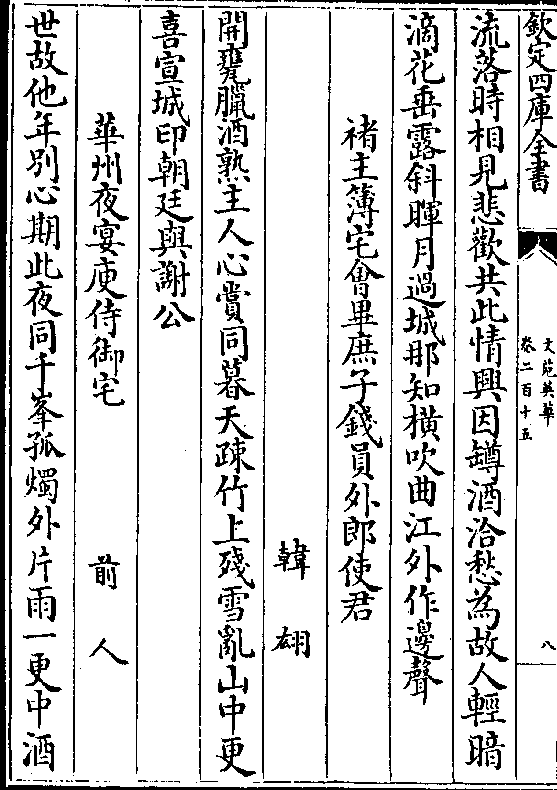 欽定四庫全書
文苑英華
卷二百十五
八
流落時相見悲歡共此情興因罇酒洽愁為故人輕暗
滴花垂露斜暉月過城那知橫吹曲江外作邊聲
褚主簿宅會畢庶子錢員外郎使君
韓翃
開甕臘酒熟主人心賞同暮天疎竹上殘雪亂山中更
喜宣城印朝廷與謝公
華州夜宴庾侍御宅
前人
世故他年別心期此夜同千峯孤燭外片雨一更中酒